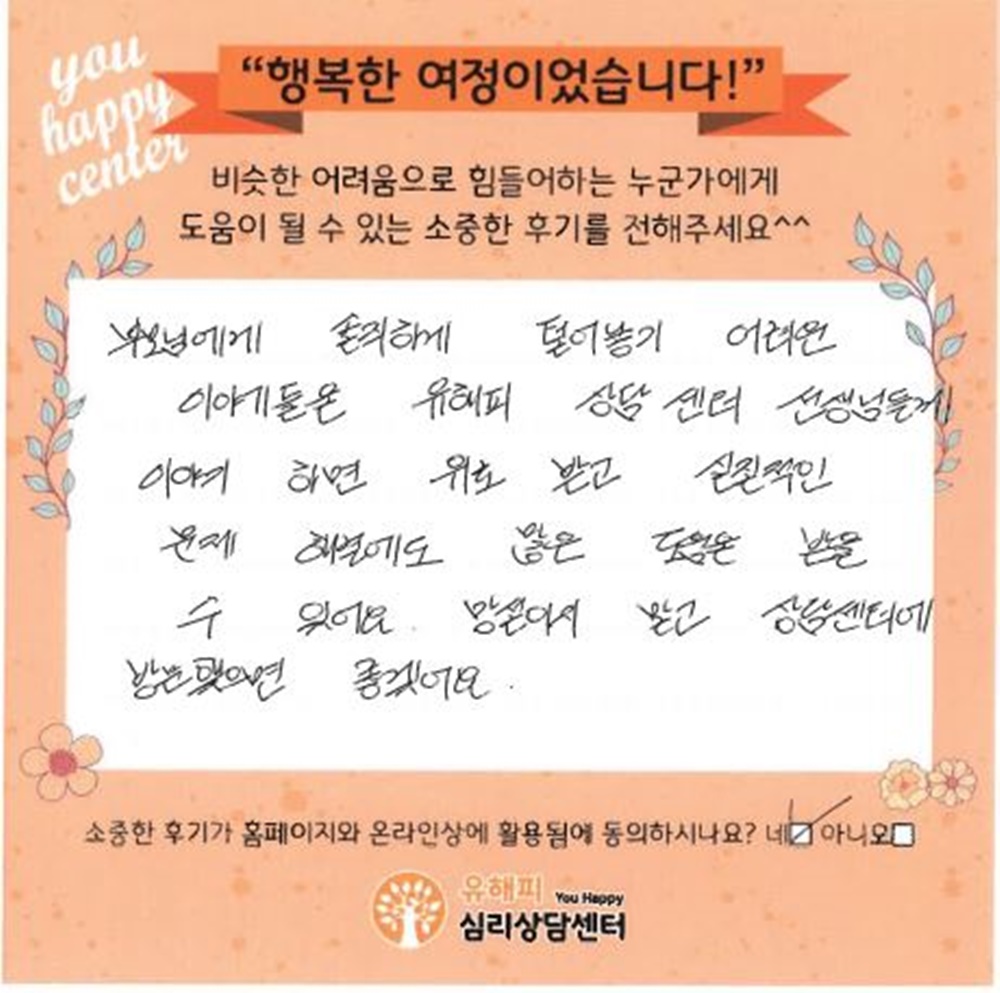 you
happy
center
“행복한 여정이었습니다!”
비슷한 어려움으로 힘들어하는 누군가에게
도움이 될 수 있는 소중한 후기를 전해주세요^^
부모님에게 솔직하게 털어놓기 어려운
이야기들은 유해피 상담 센터 선생님들께
이야기 하면 위로 받고 실질적인
문제 해결에도 많은 도움은 받을
수 있어요. 망설이지 말고 상담센터에
방문했으면 좋겠어요.
소중한 후기가 홈페이지와 온라인상에 활용됨에 동의하시나요? 네☑ 아니오☐
유해피 You Happy
심리상담센터